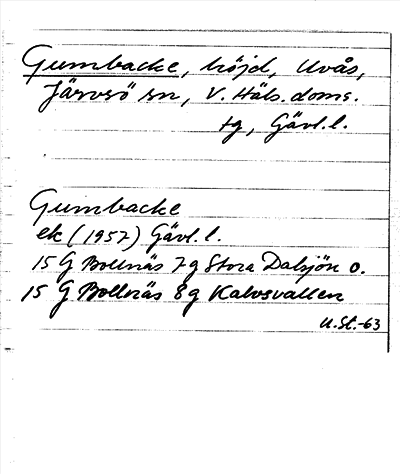 Gumbacke, höjd, Uvås,
Järvsö sn, V. Häls. doms.
tg, Gävl. l.
Gumbacke
ek (1957) Gävl. l.
15 G Bollnäs 7g Stora Dalsjön o.
15 G Bollnäs 8g Kalvsvallen
U.St.-63